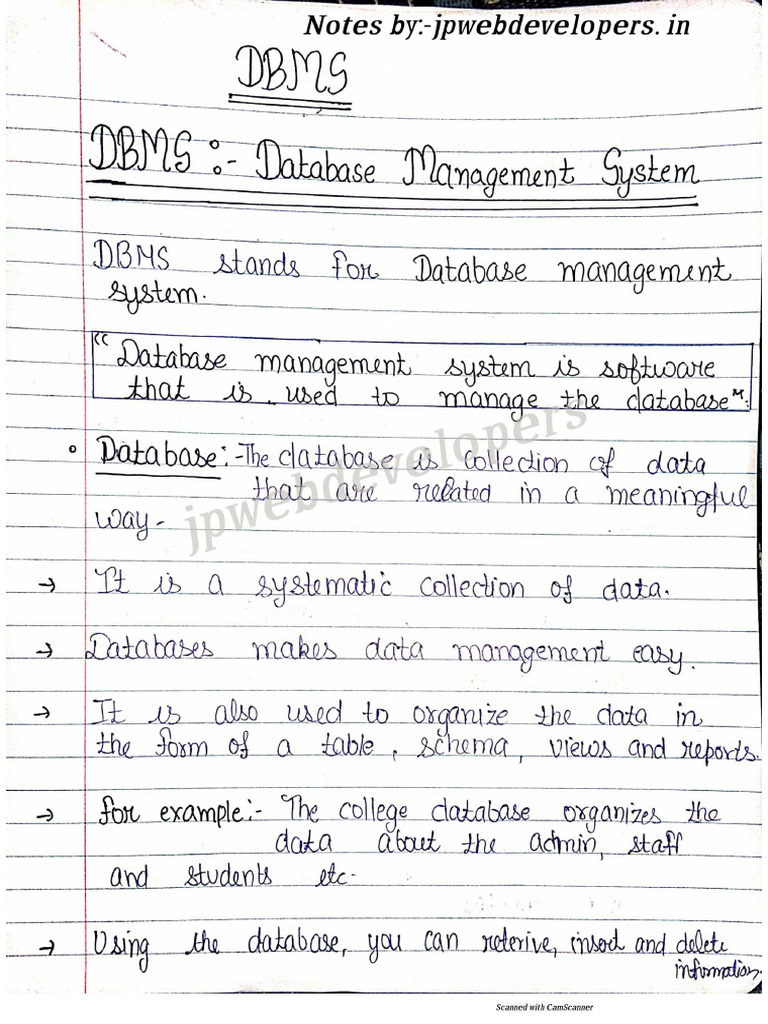 Notes by:-jpwebdevelopers. in
DBMS
DBMS :- Database Management System
DBMS stands for Database management
system.
"Database management system is software
that is used to manage the database".
Database:-The database is collection of data
that are related in a meaningful
way-
jpwebdevelopers
→ It is a systematic collection of data.
→ Databases makes data management easy.
→ It is also used to organize the data in
the form of a table, schema, views and reports.
→ for example:- The college database organizes the
data about the admin, staff
and students etc-
→ Using the database, you can reterive, insert and delete
information.
Scanned with CamScanner